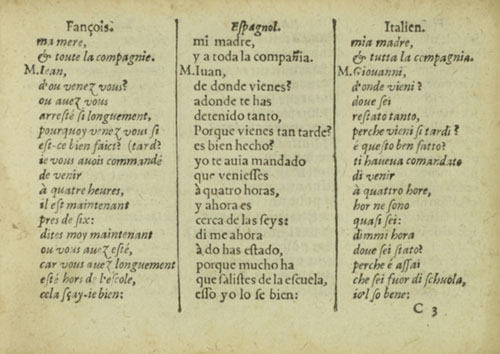 Fançois.
ma mere,
& toute la compagnie.
M. Iean,
d'ou venez vous?
ou auez vous
arresté si longuement,
pourquoy venez vous si
est-ce bien faict? (tard?
ie vous auois commandé
de venir
à quatre heures,
il est maintenant
pres de six:
dites moy maintenant
ou vous auez esté,
car vous auez longuement
esté hors de l'escole,
cela sçay-ie bien:
Espagnol.
mi madre,
y a toda la compañia.
M. Iuan,
de donde vienes?
adonde te has
detenido tanto,
Porque vienes tan tarde?
es bien hecho?
yo te auia mandado
que veniesses
à quatro horas,
y ahora es
cerca de las seys:
di me ahora
à do has estado,
porque mucho ha
que saliste de la escuela,
esso yo lo se bien:
Italien.
mia madre,
& tutta la compagnia.
M. Giouanni,
d'onde vieni?
doue sei
restato tanto,
perche vieni si tardi?
è questo ben fatto?
ti haueua comandato
di venir
à quattro hore,
hor ne sono
quasi sei:
dimmi hora
doue sei stato?
perche è assai
che sei fuor di schuola,
io'l so bene:
C 3